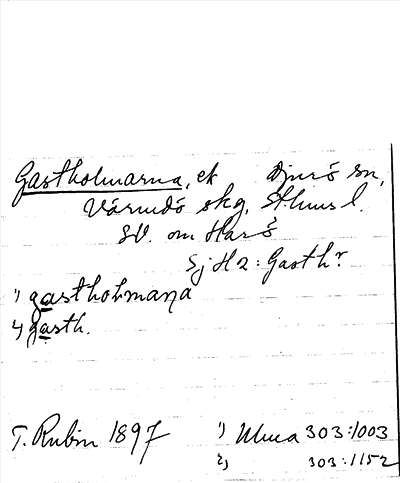 Gastholmarna, ek Djurö sn,
Värmdö skg, Sthlms l.
SV. om Harö
Sj H 2: Gasth.r
1) gastholmaṇa
2) gasth.
T. Rubin 1897 1) Ulma 303:1003
2) 303:1152